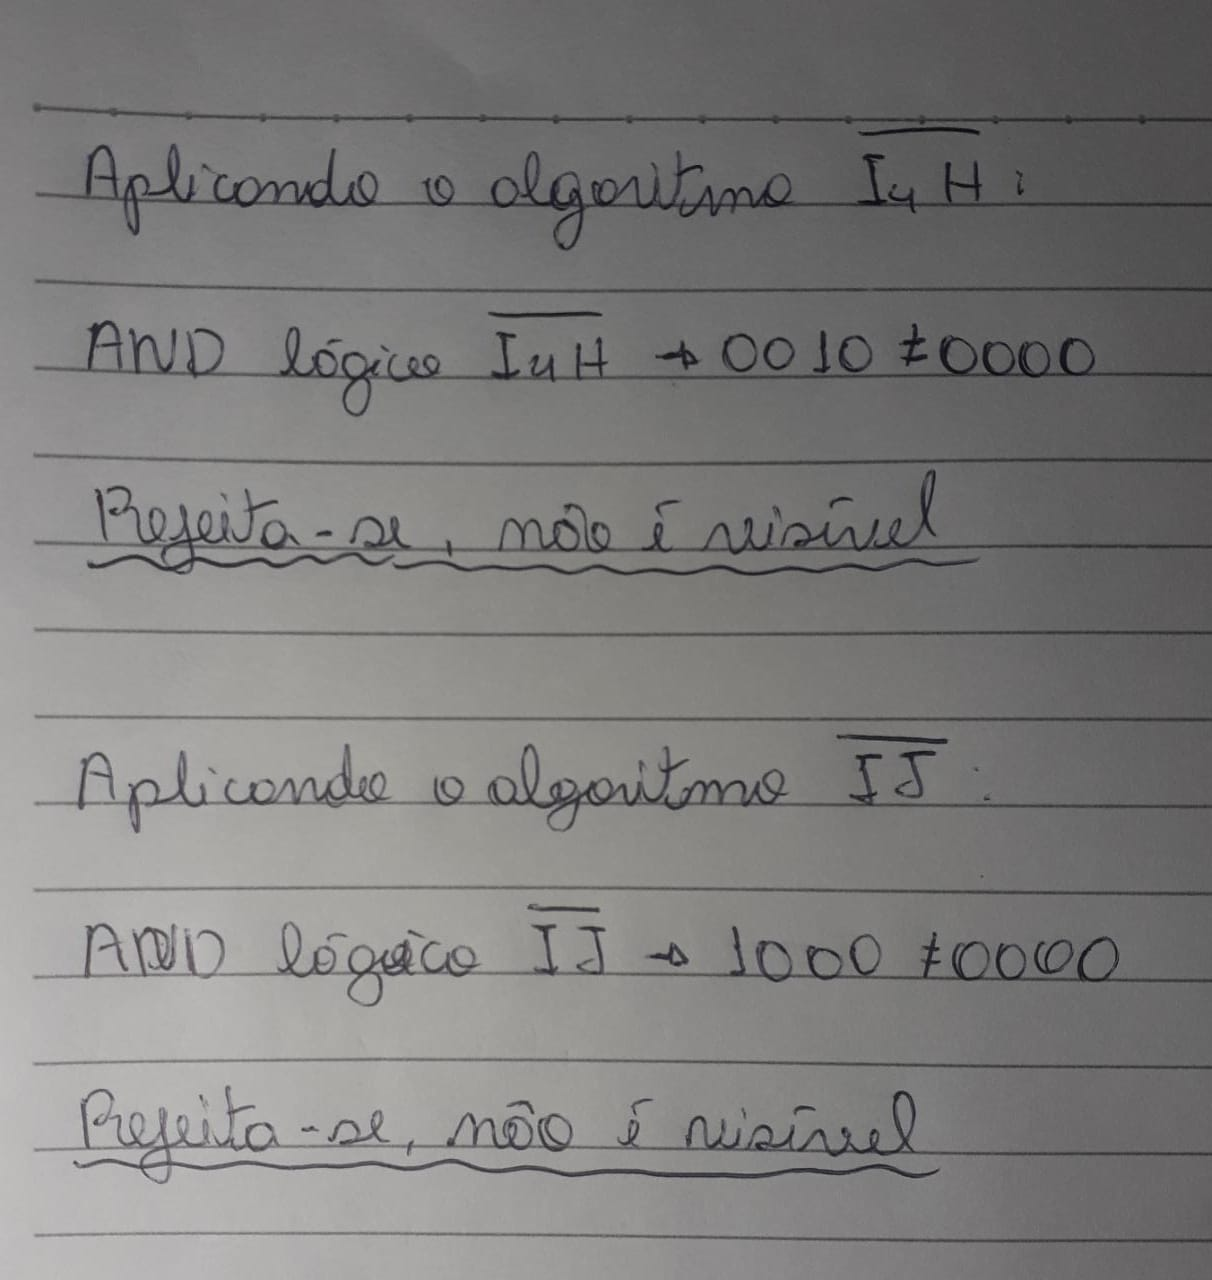 Aplicando o algoritmo I4H:
AND lógico I4H → 0010 ≠ 0000
Rejeita-se, não é visível
Aplicando o algoritmo IJ:
AND lógico IJ → 1000 ≠ 0000
Rejeita-se, não é visível